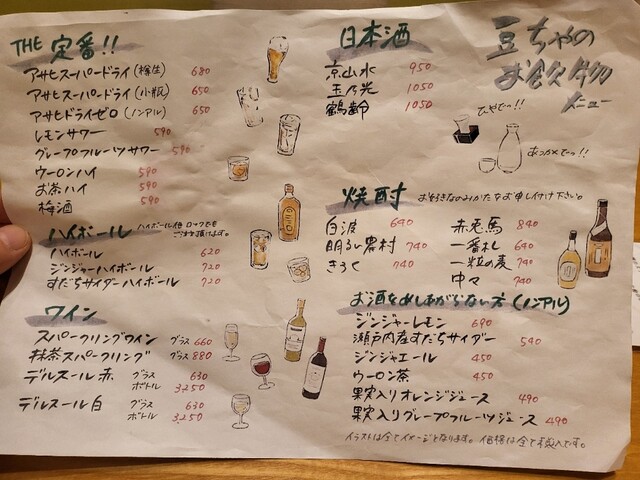 THE 定番!!
アサヒスーパードライ(樽生) 680
アサヒスーパードライ(小瓶) 650
アサヒドライゼロ(ノンアル) 650
レモンサワー 590
グレープフルーツサワー 590
ウーロンハイ 590
お茶ハイ 590
梅酒 590
ハイボール
ハイボール他 ロックでも
ハイボール 620
ジンジャーハイボール 720
すだちサイダーハイボール 720
ワイン
スパークリングワイン グラス 660
抹茶スパークリング グラス 880
デルスール 赤 グラス 630
ボトル 3,250
デルスール 白 グラス 630
ボトル 3,250
日本酒
京山水 950
玉乃光 1050
鶴齢 1050
豆ちゃの
お飲物
メニュー
ひやでっ!!
あつかんでっ!!
焼酎
お好きなのみかたをお申し付け下さい。
白波 640
明るい農村 740
きろく 740
赤兎馬 840
一番札 640
一粒の麦 740
中々 740
お酒をめしあがらない方(ノンアル)
ジンジャーレモン 690
瀬戸内産すだちサイダー 540
ジンジャエール 450
ウーロン茶 450
果実入りオレンジジュース 490
果実入りグレープフルーツジュース 490
イラストは全てイメージとなります。価格は全て税込です。